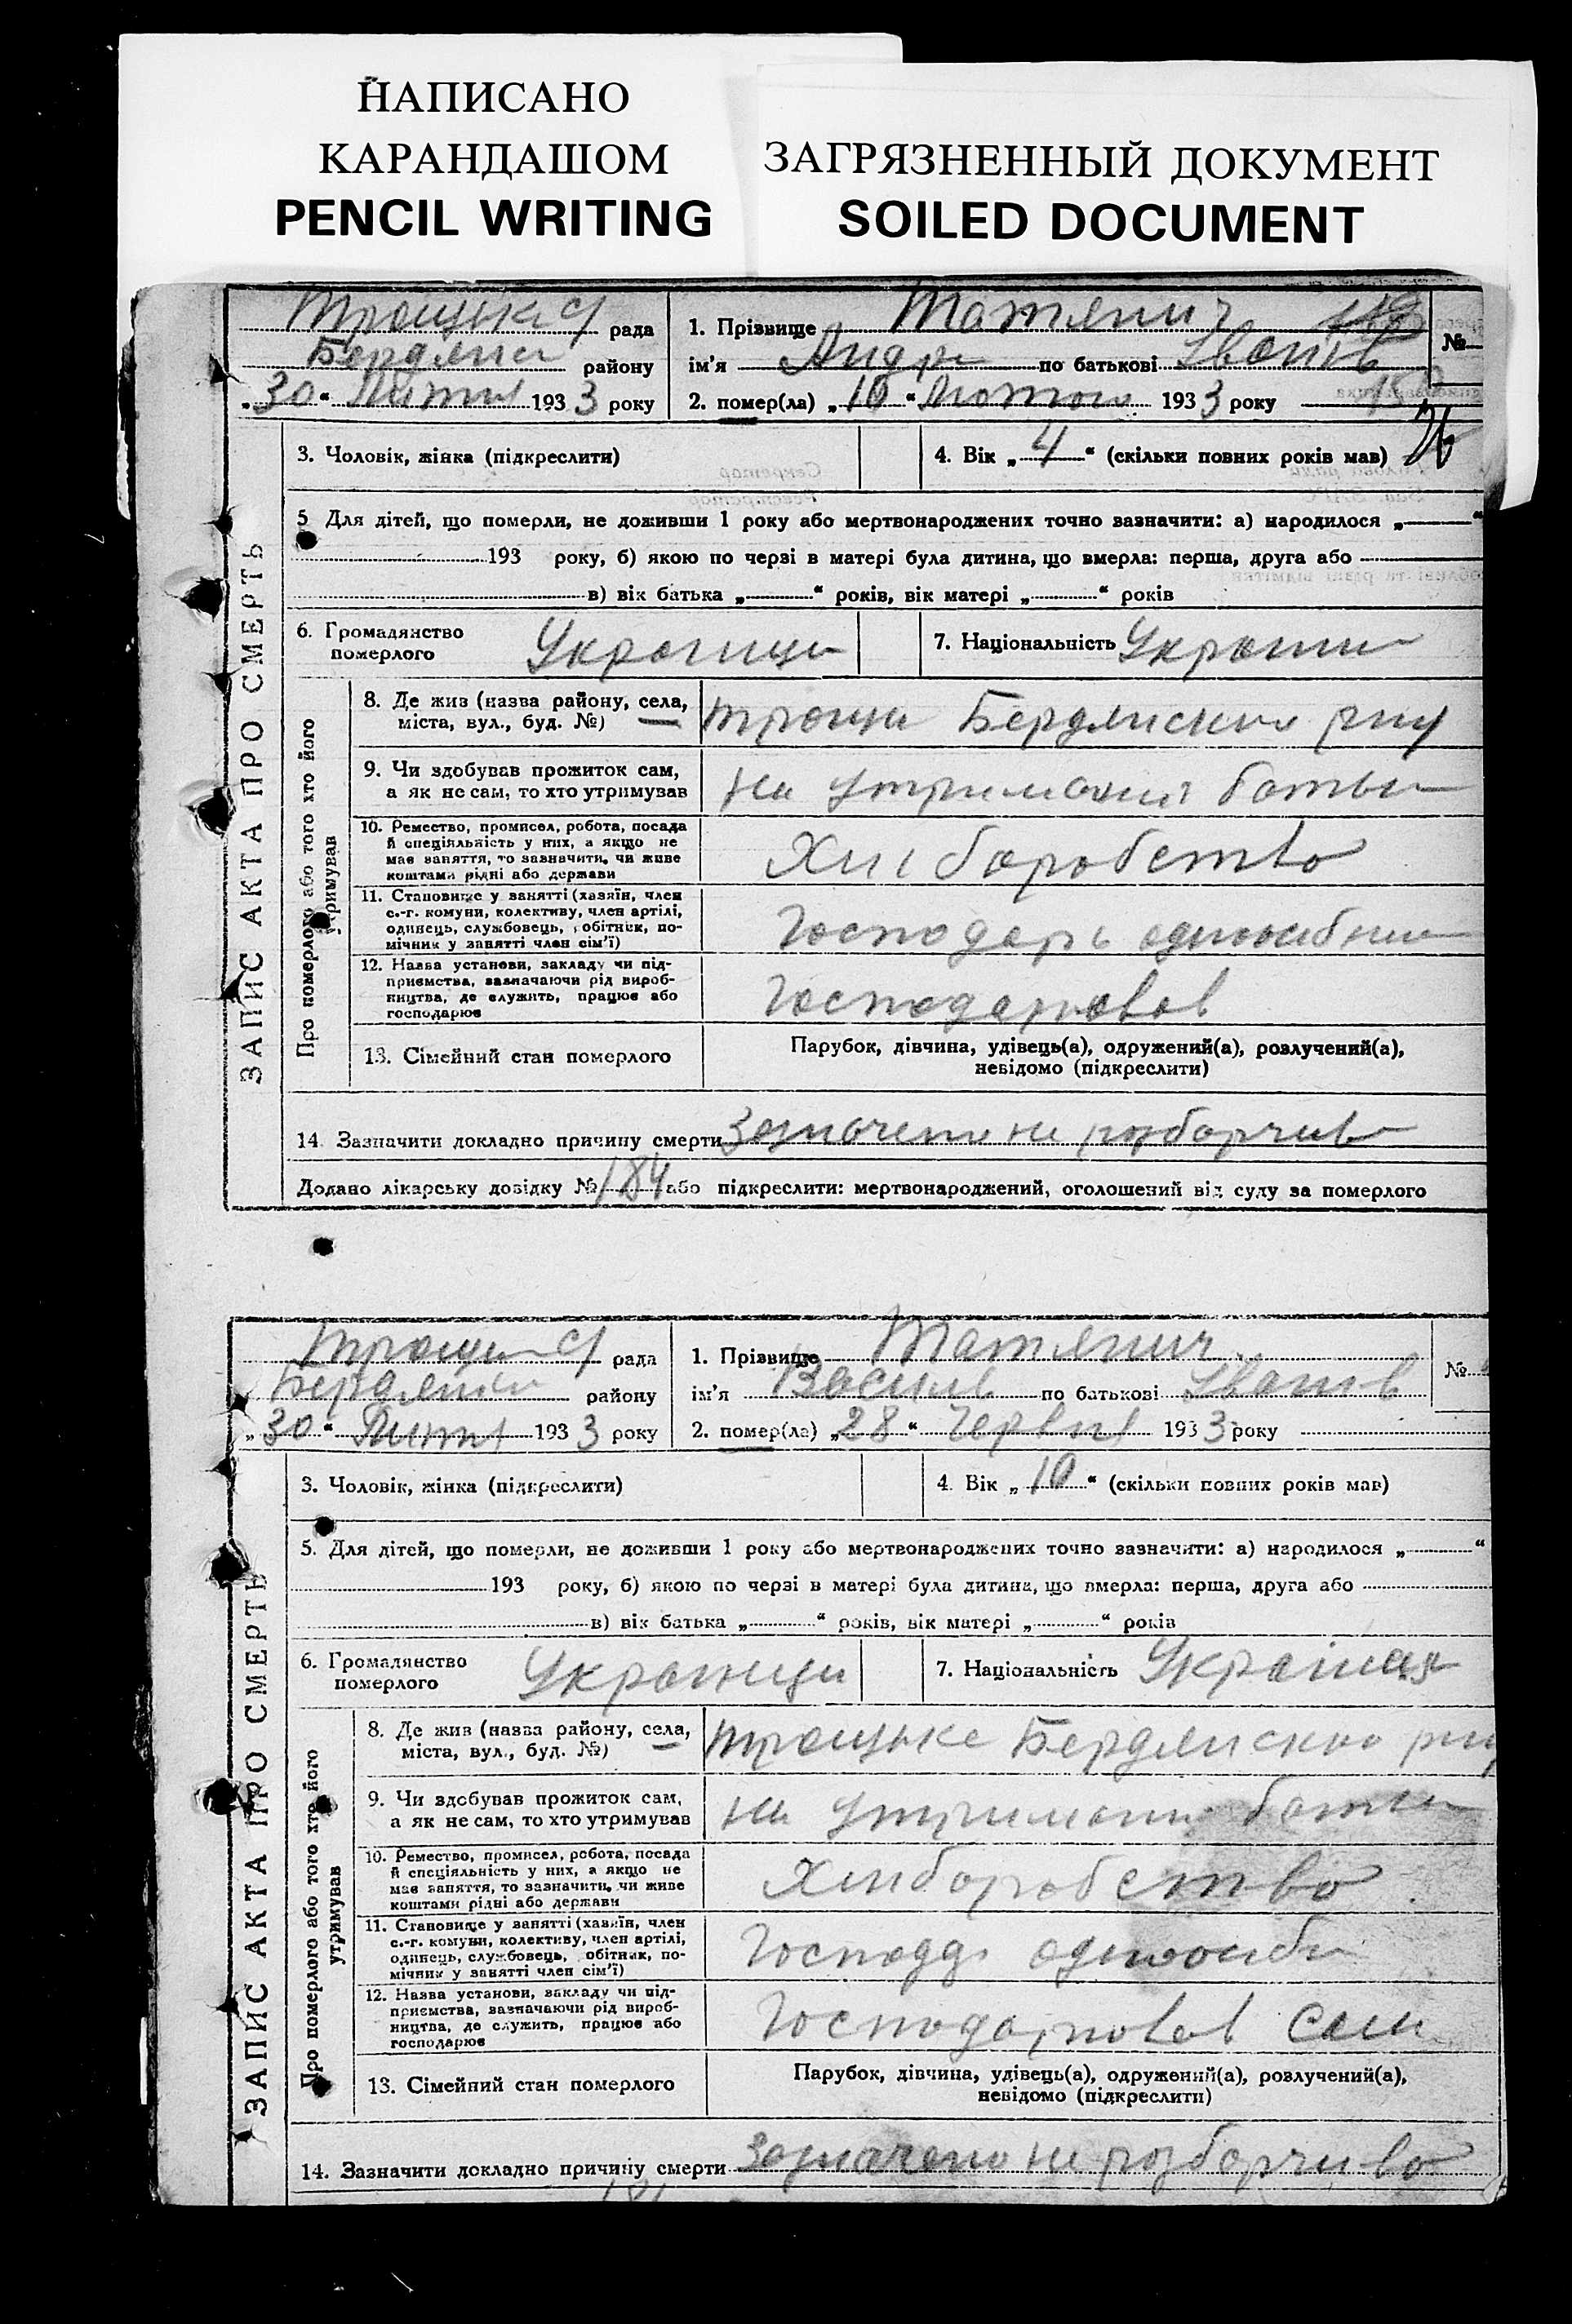 НАПИСАНО
КАРАНДАШОМ
PENCIL WRITING
ЗАГРЯЗНЕННЫЙ ДОКУМЕНТ
SOILED DOCUMENT
ЗАПИС АКТА ПРО СМЕРТЬ
Троицька с/ рада
Бердянск району
„30“ Липня 1933 року
1. Прізвище Татянич
ім'я Андри по батькові Іванів
№
2. помер(ла) „10“ Лютого 1933 року
3. Чоловік, жінка (підкреслити)
4. Вік „4“ (скільки повних років мав)
5 Для дітей, що померли, не доживши 1 року або мертвонароджених точно зазначити: а) народилося „ “
193 року, б) якою по черзі в матері була дитина, що вмерла: перша, друга або
в) вік батька „ “ років, вік матері „ “ років
6. Громадянство
померлого
Украници
7. Національність Украини
Про померлого або того хто його
утримував
8. Де жив (назва району, села,
міста, вул., буд. №)
Троицк Бердянского рну
9. Чи здобував прожиток сам,
а як не сам, то хто утримував
на утримании батьки
10. Ремество, промисел, робота, посада
й спеціяльність у них, а якщо не
має заняття, то зазначити, чи живе
коштами рідні або держави
Хлиборобство
11. Становище у занятті (хазяїн, член
с.-г. комуни, колективу, член артілі,
одинець, службовець, робітник, по-
мічник у занятті член сім'ї)
Господарь одноосибник
12. Назва установи, закладу чи під-
приємства, зазначаючи рід вироб-
ництва, де служить, працює або
господарює
Господарював
13. Сімейний стан померлого
Парубок, дівчина, удівець(а), одружений(а), розлучений(а),
невідомо (підкреслити)
14. Зазначити докладно причину смерти Зазначено не розборчиво
Додано лікарську довідку № 184 або підкреслити: мертвонароджений, оголошений від суду за померлого
ЗАПИС АКТА ПРО СМЕРТЬ
Троицьк с/ рада
Бердянск району
„30“ Липня 1933 року
1. Прізвище Татянич
ім'я Василь по батькові Іванів
№
2. помер(ла) „28“ Червня 1933 року
3. Чоловік, жінка (підкреслити)
4. Вік „10“ (скільки повних років мав)
5. Для дітей, що померли, не доживши 1 року або мертвонароджених точно зазначити: а) народилося „ “
193 року, б) якою по черзі в матері була дитина, що вмерла: перша, друга або
в) вік батька „ “ років, вік матері „ “ років
6. Громадянство
померлого
Украници
7. Національність
Про померлого або того хто його
утримував
8. Де жив (назва району, села,
міста, вул., буд. №)
Троицьке Бердянского рну
9. Чи здобував прожиток сам,
а як не сам, то хто утримував
на утримани батьки
10. Ремество, промисел, робота, посада
й спеціяльність у них, а якщо не
має заняття, то зазначити, чи живе
коштами рідні або держави
Хлиборобство
11. Становище у занятті (хазяїн, член
с.-г. комуни, колективу, член артілі,
одинець, службовець, робітник, по-
мічник у занятті член сім'ї)
Господар одноосиб
12. Назва установи, закладу чи під-
приємства, зазначаючи рід вироб-
ництва, де служить, працює або
господарює
Господарював сам
13. Сімейний стан померлого
Парубок, дівчина, удівець(а), одружений(а), розлучений(а),
невідомо (підкреслити)
14. Зазначити докладно причину смерти Зазначено не розборчиво